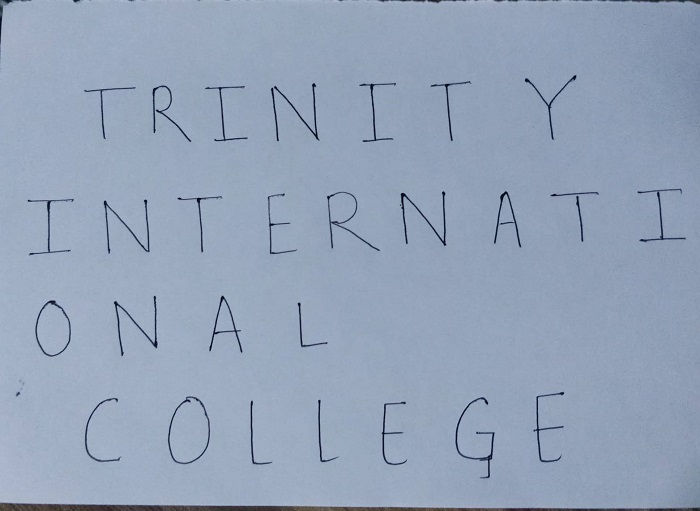 TRINITY
INTERNATI
ONAL
COLLEGE